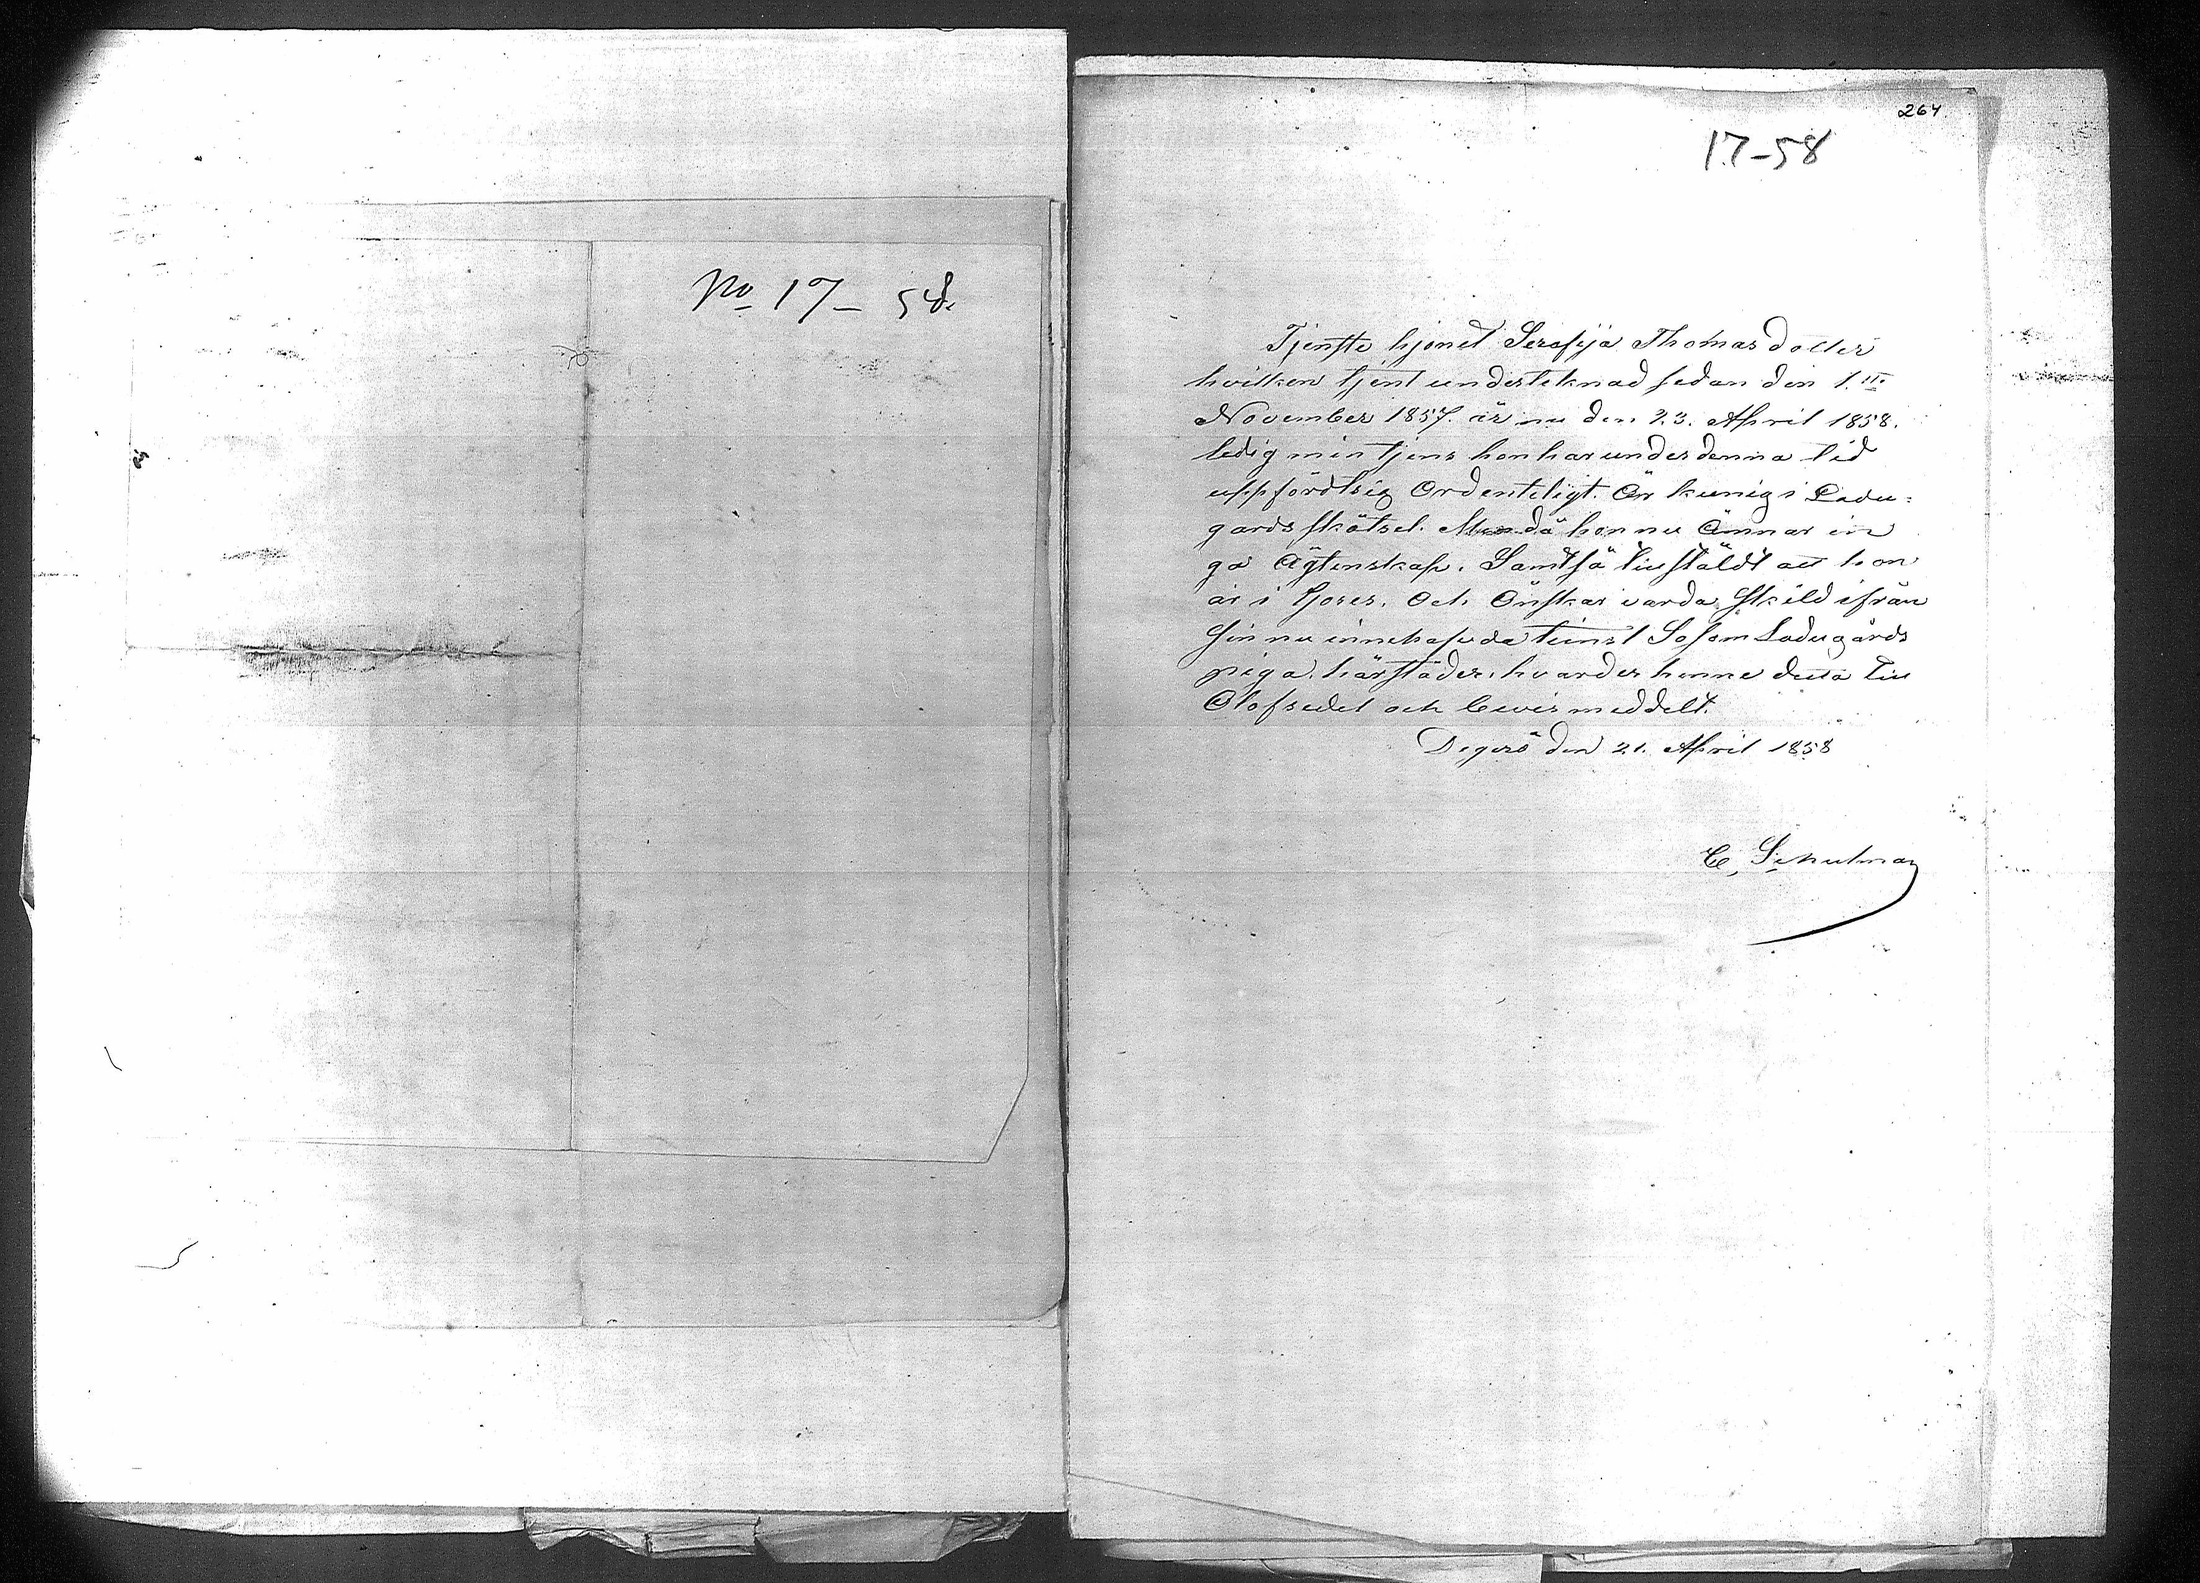 No 17 – 58.
264.
17–58
Tjenste hjonet Serafija Thomas dotter
hvilken tjent underteknad sedan den 1.
November 1857. är nu den 23. April 1858.
ledig min tjens hon har under denna tid
uppfördt sig Ordenteligt. Är kunig i Ladu=
gards skötsel. Men då hon nu Ämnar in
gå Ägtenskap. Samt så tillstäldt att hon
är i Och Önskar varda skild ifrån
sin nu innehafvda tienst Såsom Ladugårds
piga, härstädes, hvarder henne detta till
Olofsedel och bewis meddelt.
Degerö den 21. April 1858
C. Schulman